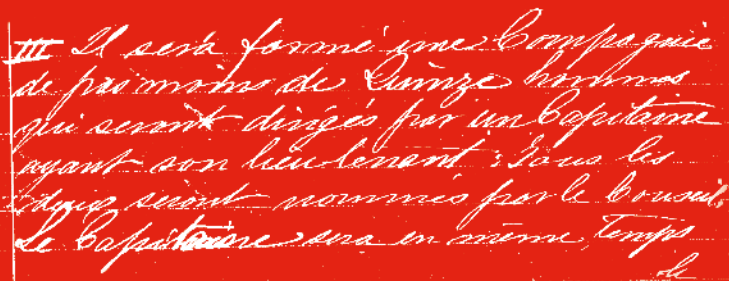 III Il sera formé une Compagnie
de pas moins de Quinze hommes
qui seront dirigés par un Capitaine
ayant son lieutenant; Tous les
deux seront nommés par le Conseil;
Le Capitaine sera en même temps
le